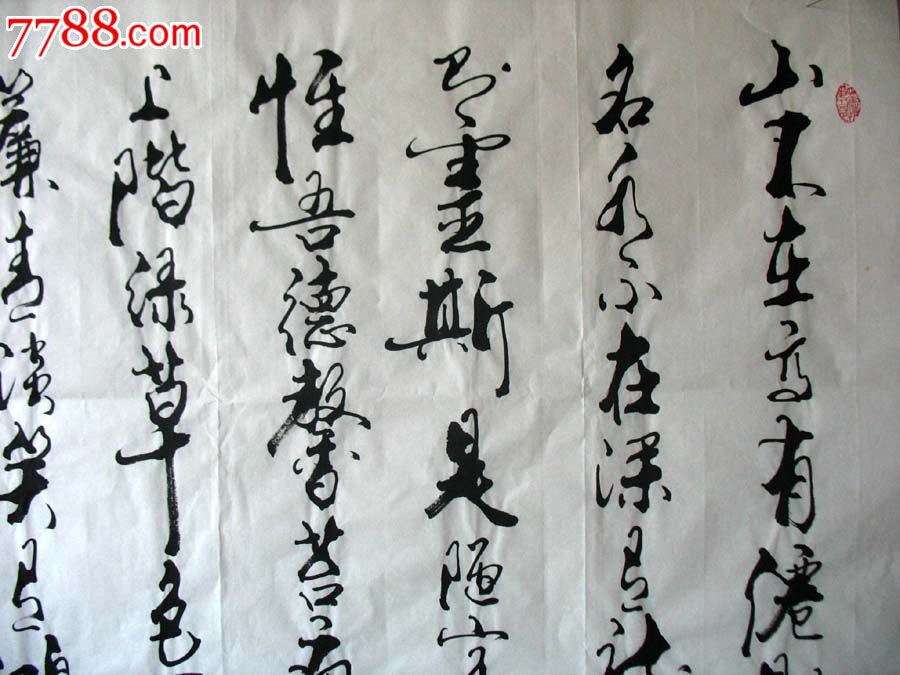 7788.com
山不在高有僊則
名水不在深有龍
则靈斯是陋室
惟吾德馨苔痕
上階绿草色
簾青談笑有鴻